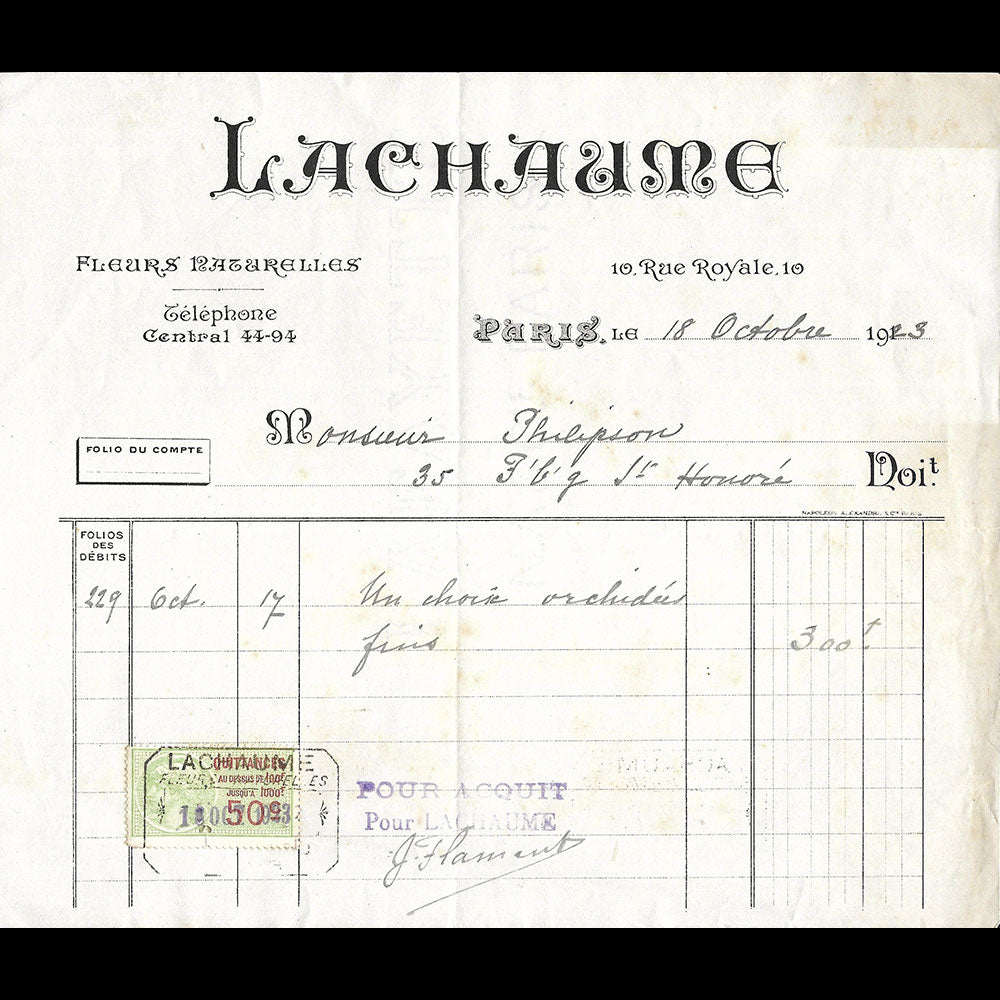 LACHAUME
FLEURS NATURELLES
10, Rue Royale, 10
Téléphone
Central 44-94
PARIS, LE 18 Octobre 1923
Monsieur Philipson
FOLIO DU COMPTE
35 F'b'g St Honoré Doit
NAPOLEON ALEXANDRE & Cie PARIS
FOLIOS
DES
DÉBITS
229 Oct. 17 Un choix orchidées
fins 300f
LACHAUME
FLEURS NATURELLES
QUITTANCES
AU DESSUS DE 100F
JUSQU'A 1000F
50c
18 OCT 1923
POUR ACQUIT
Pour LACHAUME
J. Flamant